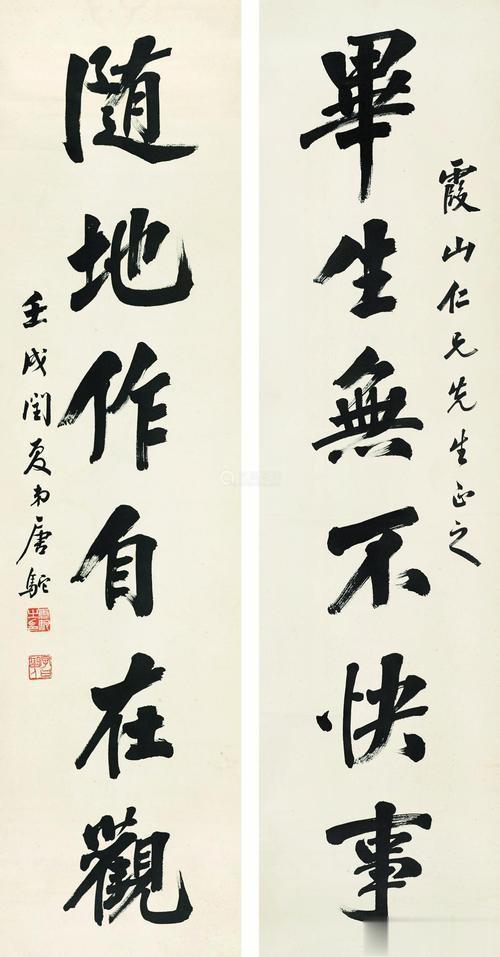 霞山仁兄先生正之
畢生無不快事
隨地作自在觀
壬戌閏夏弟唐駝